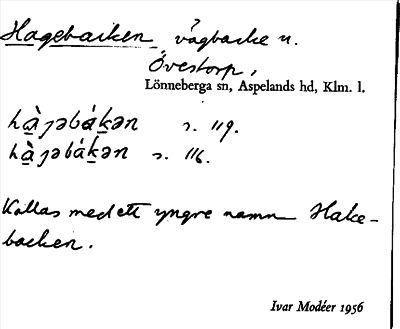 Hagebacken, vägbacke n.
Övestorp,
Lönneberga sn, Aspelands hd, Klm. l.
hàɟəbákən s. 119.
hàɟəbákən s. 116.
Kallas med ett yngre namn Hake-
backen.
Ivar Modéer 1956